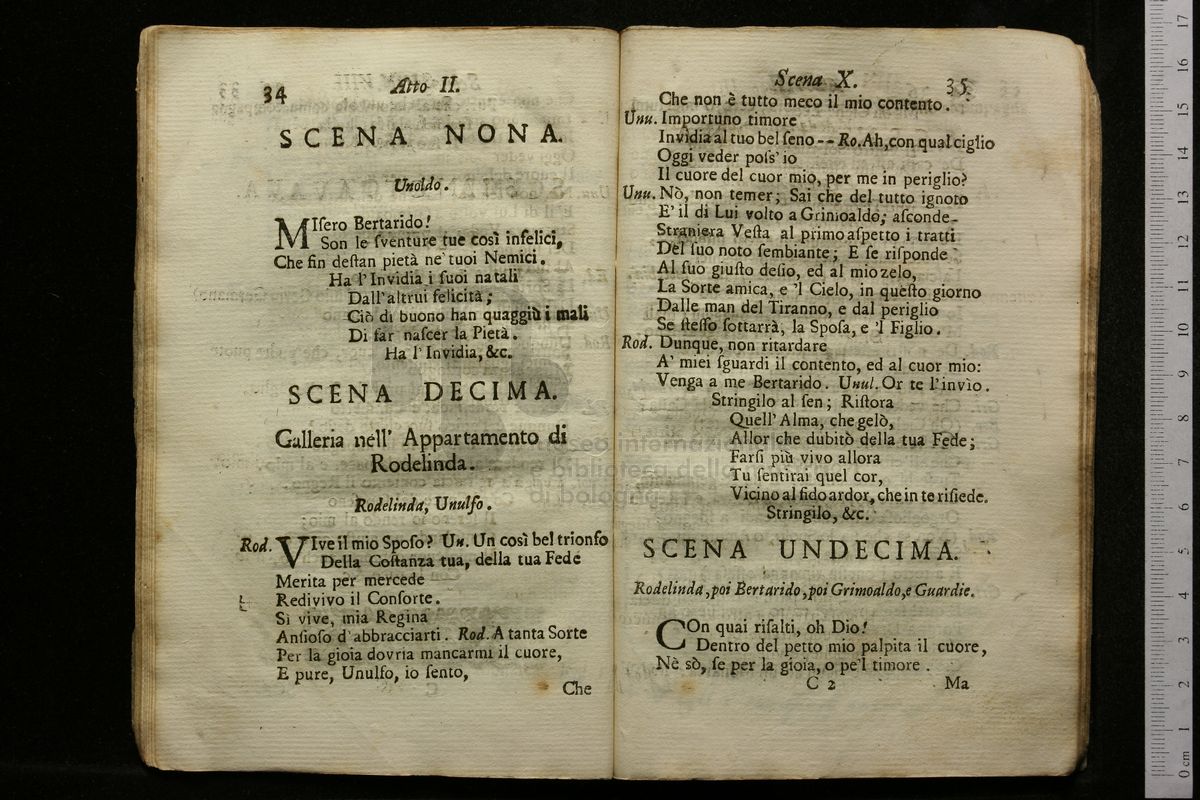 34 Atto II.
SCENA NONA.
Unoldo.
MIſero Bertarido!
Son le ſventure tue così infelici,
Che fin deſtan pietà ne' tuoi Nemici.
Ha l' Invidia i ſuoi natali
Dall' altrui felicità;
Ciò di buono han quaggiù i mali
Di far naſcer la Pietà.
Ha l' Invidia, &c.
SCENA DECIMA.
Galleria nell' Appartamento di
Rodelinda.
Rodelinda, Unulfo.
Rod. VIve il mio Spoſo? Un. Un così bel trionfo
Della Coſtanza tua, della tua Fede
Merita per mercede
Redivivo il Conſorte.
Sì vive, mia Regina
Anſioſo d' abbracciarti. Rod. A tanta Sorte
Per la gioia dovria mancarmi il cuore,
E pure, Unulfo, io ſento,
Che
Scena X. 35
Che non è tutto meco il mio contento.
Unu. Importuno timore
Invidia al tuo bel ſeno -- Ro. Ah, con qual ciglio
Oggi veder poſs' io
Il cuore del cuor mio, per me in periglio?
Unu. Nò, non temer; Sai che del tutto ignoto
E' il di Lui volto a Grimoaldo; aſconde-
Straniera Veſta al primo aſpetto i tratti
Del ſuo noto ſembiante; E ſe riſponde
Al ſuo giuſto deſio, ed al mio zelo,
La Sorte amica, e 'l Cielo, in queſto giorno
Dalle man del Tiranno, e dal periglio
Se ſteſſo ſottarrà, la Spoſa, e 'l Figlio.
Rod. Dunque, non ritardare
A' miei ſguardi il contento, ed al cuor mio:
Venga a me Bertarido. Unul. Or te l'invìo.
Stringilo al ſen; Riſtora
Quell' Alma, che gelò,
Allor che dubitò della tua Fede;
Farſi più vivo allora
Tu ſentirai quel cor,
Vicino al fido ardor, che in te riſiede.
Stringilo, &c.
SCENA UNDECIMA.
Rodelinda, poi Bertarido, poi Grimoaldo, e Guardie.
COn quai riſalti, oh Dio!
Dentro del petto mio palpita il cuore,
Nè sò, ſe per la gioia, o pe'l timore.
C 2 Ma
museo internazionale
e biblioteca della musica
di bologna
0 cm 1 2 3 4 5 6 7 8 9 10 11 12 13 14 15 16 17